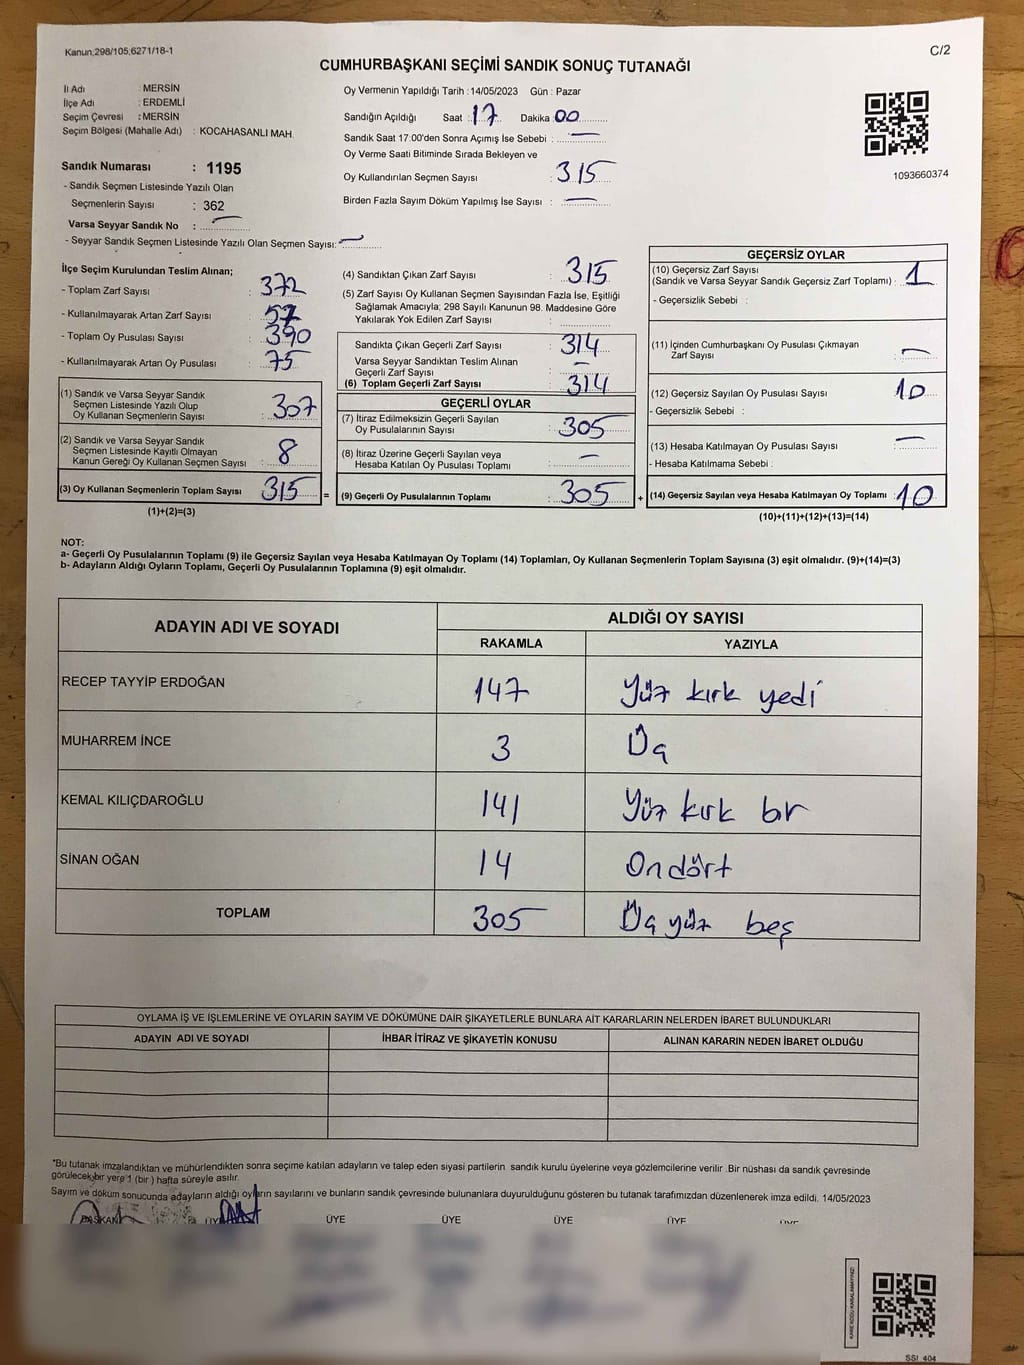 Kanun:298/105,6271/18-1
C/2
CUMHURBAŞKANI SEÇİMİ SANDIK SONUÇ TUTANAĞI
İl Adı : MERSİN
İlçe Adı : ERDEMLİ
Seçim Çevresi : MERSİN
Seçim Bölgesi (Mahalle Adı) : KOCAHASANLI MAH.
Sandık Numarası : 1195
- Sandık Seçmen Listesinde Yazılı Olan
Seçmenlerin Sayısı : 362
Varsa Seyyar Sandık No : —
- Seyyar Sandık Seçmen Listesinde Yazılı Olan Seçmen Sayısı: —
Oy Vermenin Yapıldığı Tarih :14/05/2023 Gün : Pazar
Sandığın Açıldığı Saat : 17 Dakika 00
Sandık Saat 17:00'den Sonra Açımış İse Sebebi : —
Oy Verme Saati Bitiminde Sırada Bekleyen ve
Oy Kullandırılan Seçmen Sayısı : 315
Birden Fazla Sayım Döküm Yapılmış İse Sayısı : —
1093660374
İlçe Seçim Kurulundan Teslim Alınan;
- Toplam Zarf Sayısı : 372
- Kullanılmayarak Artan Zarf Sayısı : 57
- Toplam Oy Pusulası Sayısı : 390
- Kullanılmayarak Artan Oy Pusulası : 75
(1) Sandık ve Varsa Seyyar Sandık
Seçmen Listesinde Yazılı Olup
Oy Kullanan Seçmenlerin Sayısı : 307
(2) Sandık ve Varsa Seyyar Sandık
Seçmen Listesinde Kayıtlı Olmayan
Kanun Gereği Oy Kullanan Seçmen Sayısı : 8
(3) Oy Kullanan Seçmenlerin Toplam Sayısı : 315 =
(1)+(2)=(3)
(4) Sandıktan Çıkan Zarf Sayısı : 315
(5) Zarf Sayısı Oy Kullanan Seçmen Sayısından Fazla İse, Eşitliği
Sağlamak Amacıyla; 298 Sayılı Kanunun 98. Maddesine Göre
Yakılarak Yok Edilen Zarf Sayısı :
Sandıkta Çıkan Geçerli Zarf Sayısı : 314
Varsa Seyyar Sandıktan Teslim Alınan
Geçerli Zarf Sayısı : —
(6) Toplam Geçerli Zarf Sayısı : 314
GEÇERLİ OYLAR
(7) İtiraz Edilmeksizin Geçerli Sayılan
Oy Pusulalarının Sayısı : 305
(8) İtiraz Üzerine Geçerli Sayılan veya
Hesaba Katılan Oy Pusulası Toplamı : —
(9) Geçerli Oy Pusulalarının Toplamı : 305 +
GEÇERSİZ OYLAR
(10) Geçersiz Zarf Sayısı
(Sandık ve Varsa Seyyar Sandık Geçersiz Zarf Toplamı) : 1
- Geçersizlik Sebebi :
(11) İçinden Cumhurbaşkanı Oy Pusulası Çıkmayan
Zarf Sayısı : —
(12) Geçersiz Sayılan Oy Pusulası Sayısı : 10
- Geçersizlik Sebebi :
(13) Hesaba Katılmayan Oy Pusulası Sayısı : —
- Hesaba Katılmama Sebebi :
(14) Geçersiz Sayılan veya Hesaba Katılmayan Oy Toplamı : 10
(10)+(11)+(12)+(13)=(14)
NOT:
a- Geçerli Oy Pusulalarının Toplamı (9) ile Geçersiz Sayılan veya Hesaba Katılmayan Oy Toplamı (14) Toplamları, Oy Kullanan Seçmenlerin Toplam Sayısına (3) eşit olmalıdır. (9)+(14)=(3)
b- Adayların Aldığı Oyların Toplamı, Geçerli Oy Pusulalarının Toplamına (9) eşit olmalıdır.
ADAYIN ADI VE SOYADI ALDIĞI OY SAYISI
RAKAMLA YAZIYLA
RECEP TAYYİP ERDOĞAN 147 Yüz kırk yedi
MUHARREM İNCE 3 Üç
KEMAL KILIÇDAROĞLU 141 Yüz kırk bir
SİNAN OĞAN 14 Ondört
TOPLAM 305 Üç yüz beş
OYLAMA İŞ VE İŞLEMLERİNE VE OYLARIN SAYIM VE DÖKÜMÜNE DAİR ŞİKAYETLERLE BUNLARA AİT KARARLARIN NELERDEN İBARET BULUNDUKLARI
ADAYIN ADI VE SOYADI İHBAR İTİRAZ VE ŞİKAYETİN KONUSU ALINAN KARARIN NEDEN İBARET OLDUĞU
*Bu tutanak imzalandıktan ve mühürlendikten sonra seçime katılan adayların ve talep eden siyasi partilerin sandık kurulu üyelerine veya gözlemcilerine verilir .Bir nüshası da sandık çevresinde
görülecek bir yere 1 (bir ) hafta süreyle asılır.
Sayım ve döküm sonucunda adayların aldığı oyların sayılarını ve bunların sandık çevresinde bulunanlara duyurulduğunu gösteren bu tutanak tarafımızdan düzenlenerek imza edildi. 14/05/2023
BAŞKAN ÜYE ÜYE ÜYE ÜYE ÜYE ÜYE
KARE KODU KARALAMAYINIZ!
SSI_404